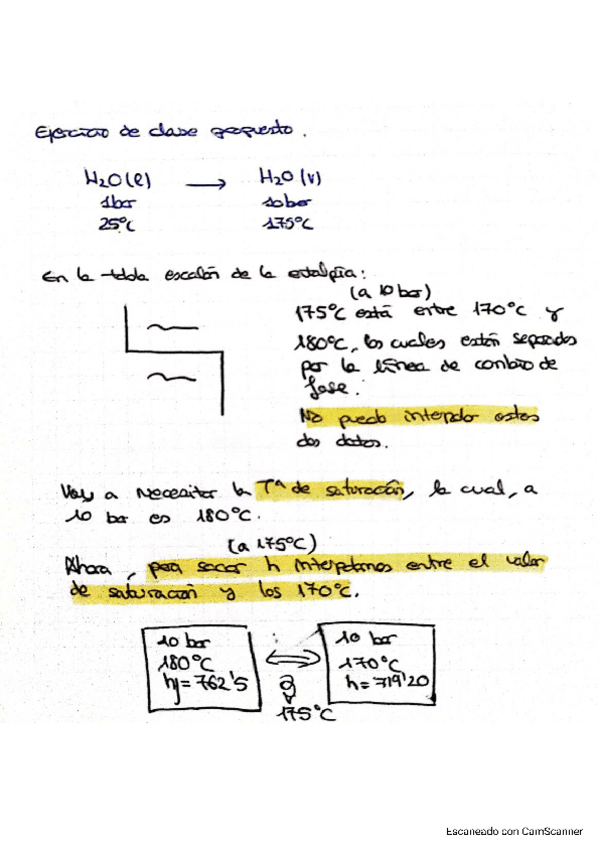 Ejercicio de clase propuesto.
H₂O(l) → H₂O(v)
1bar 10bar
25ºC 175ºC
En la tabla escalón de la entalpía:
(a 10 bar)
175ºC está entre 170ºC y
180ºC, los cuales están separados
por la línea de cambio de
fase.
No puedo interpolar estos
dos datos.
Voy a necesitar la Tª de saturación, la cual, a
10 bar es 180ºC.
(a 175ºC)
Ahora, para sacar h interpolamos entre el valor
de saturación y los 170ºC.
10 bar 10 bar
180ºC 170ºC
h = 762'5 h = 719'20
175ºC
Escaneado con CamScanner